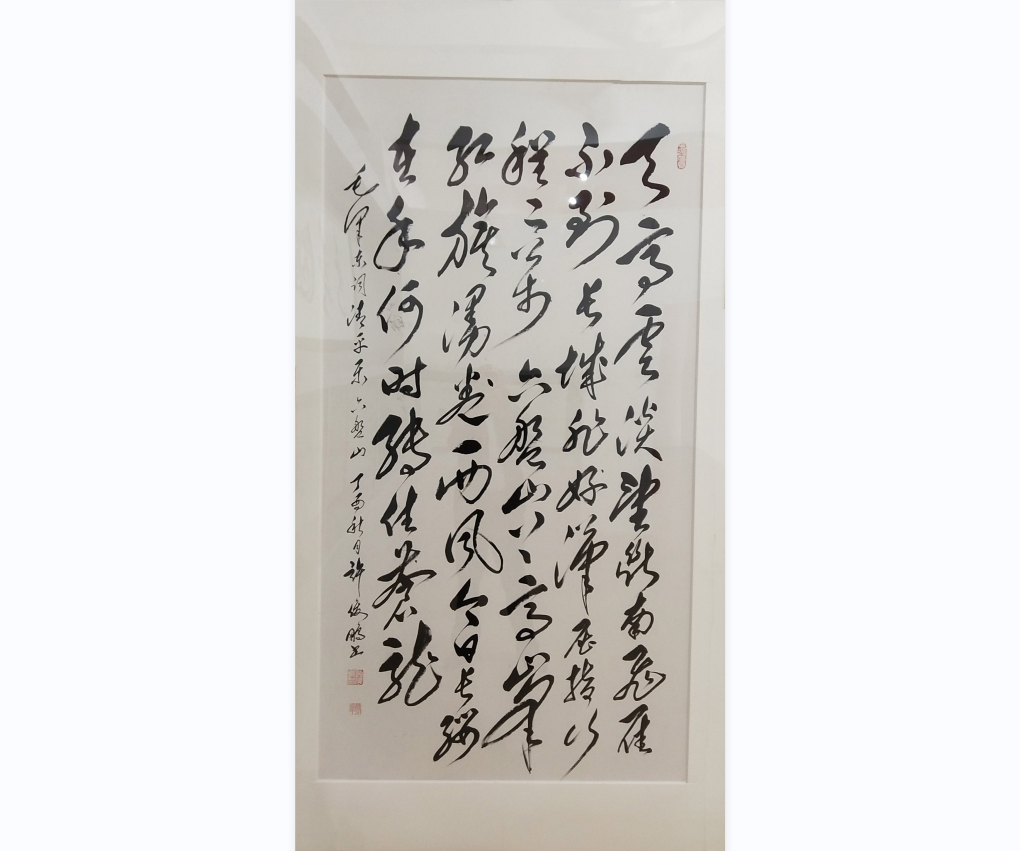 天高云淡望断南飞雁
不到长城非好汉屈指行
程二万步六盘山上高峰
红旗漫卷西风今日长缨
在手何时缚住苍龙
毛泽东词清平乐六盘山丁酉秋月许俊鹏书